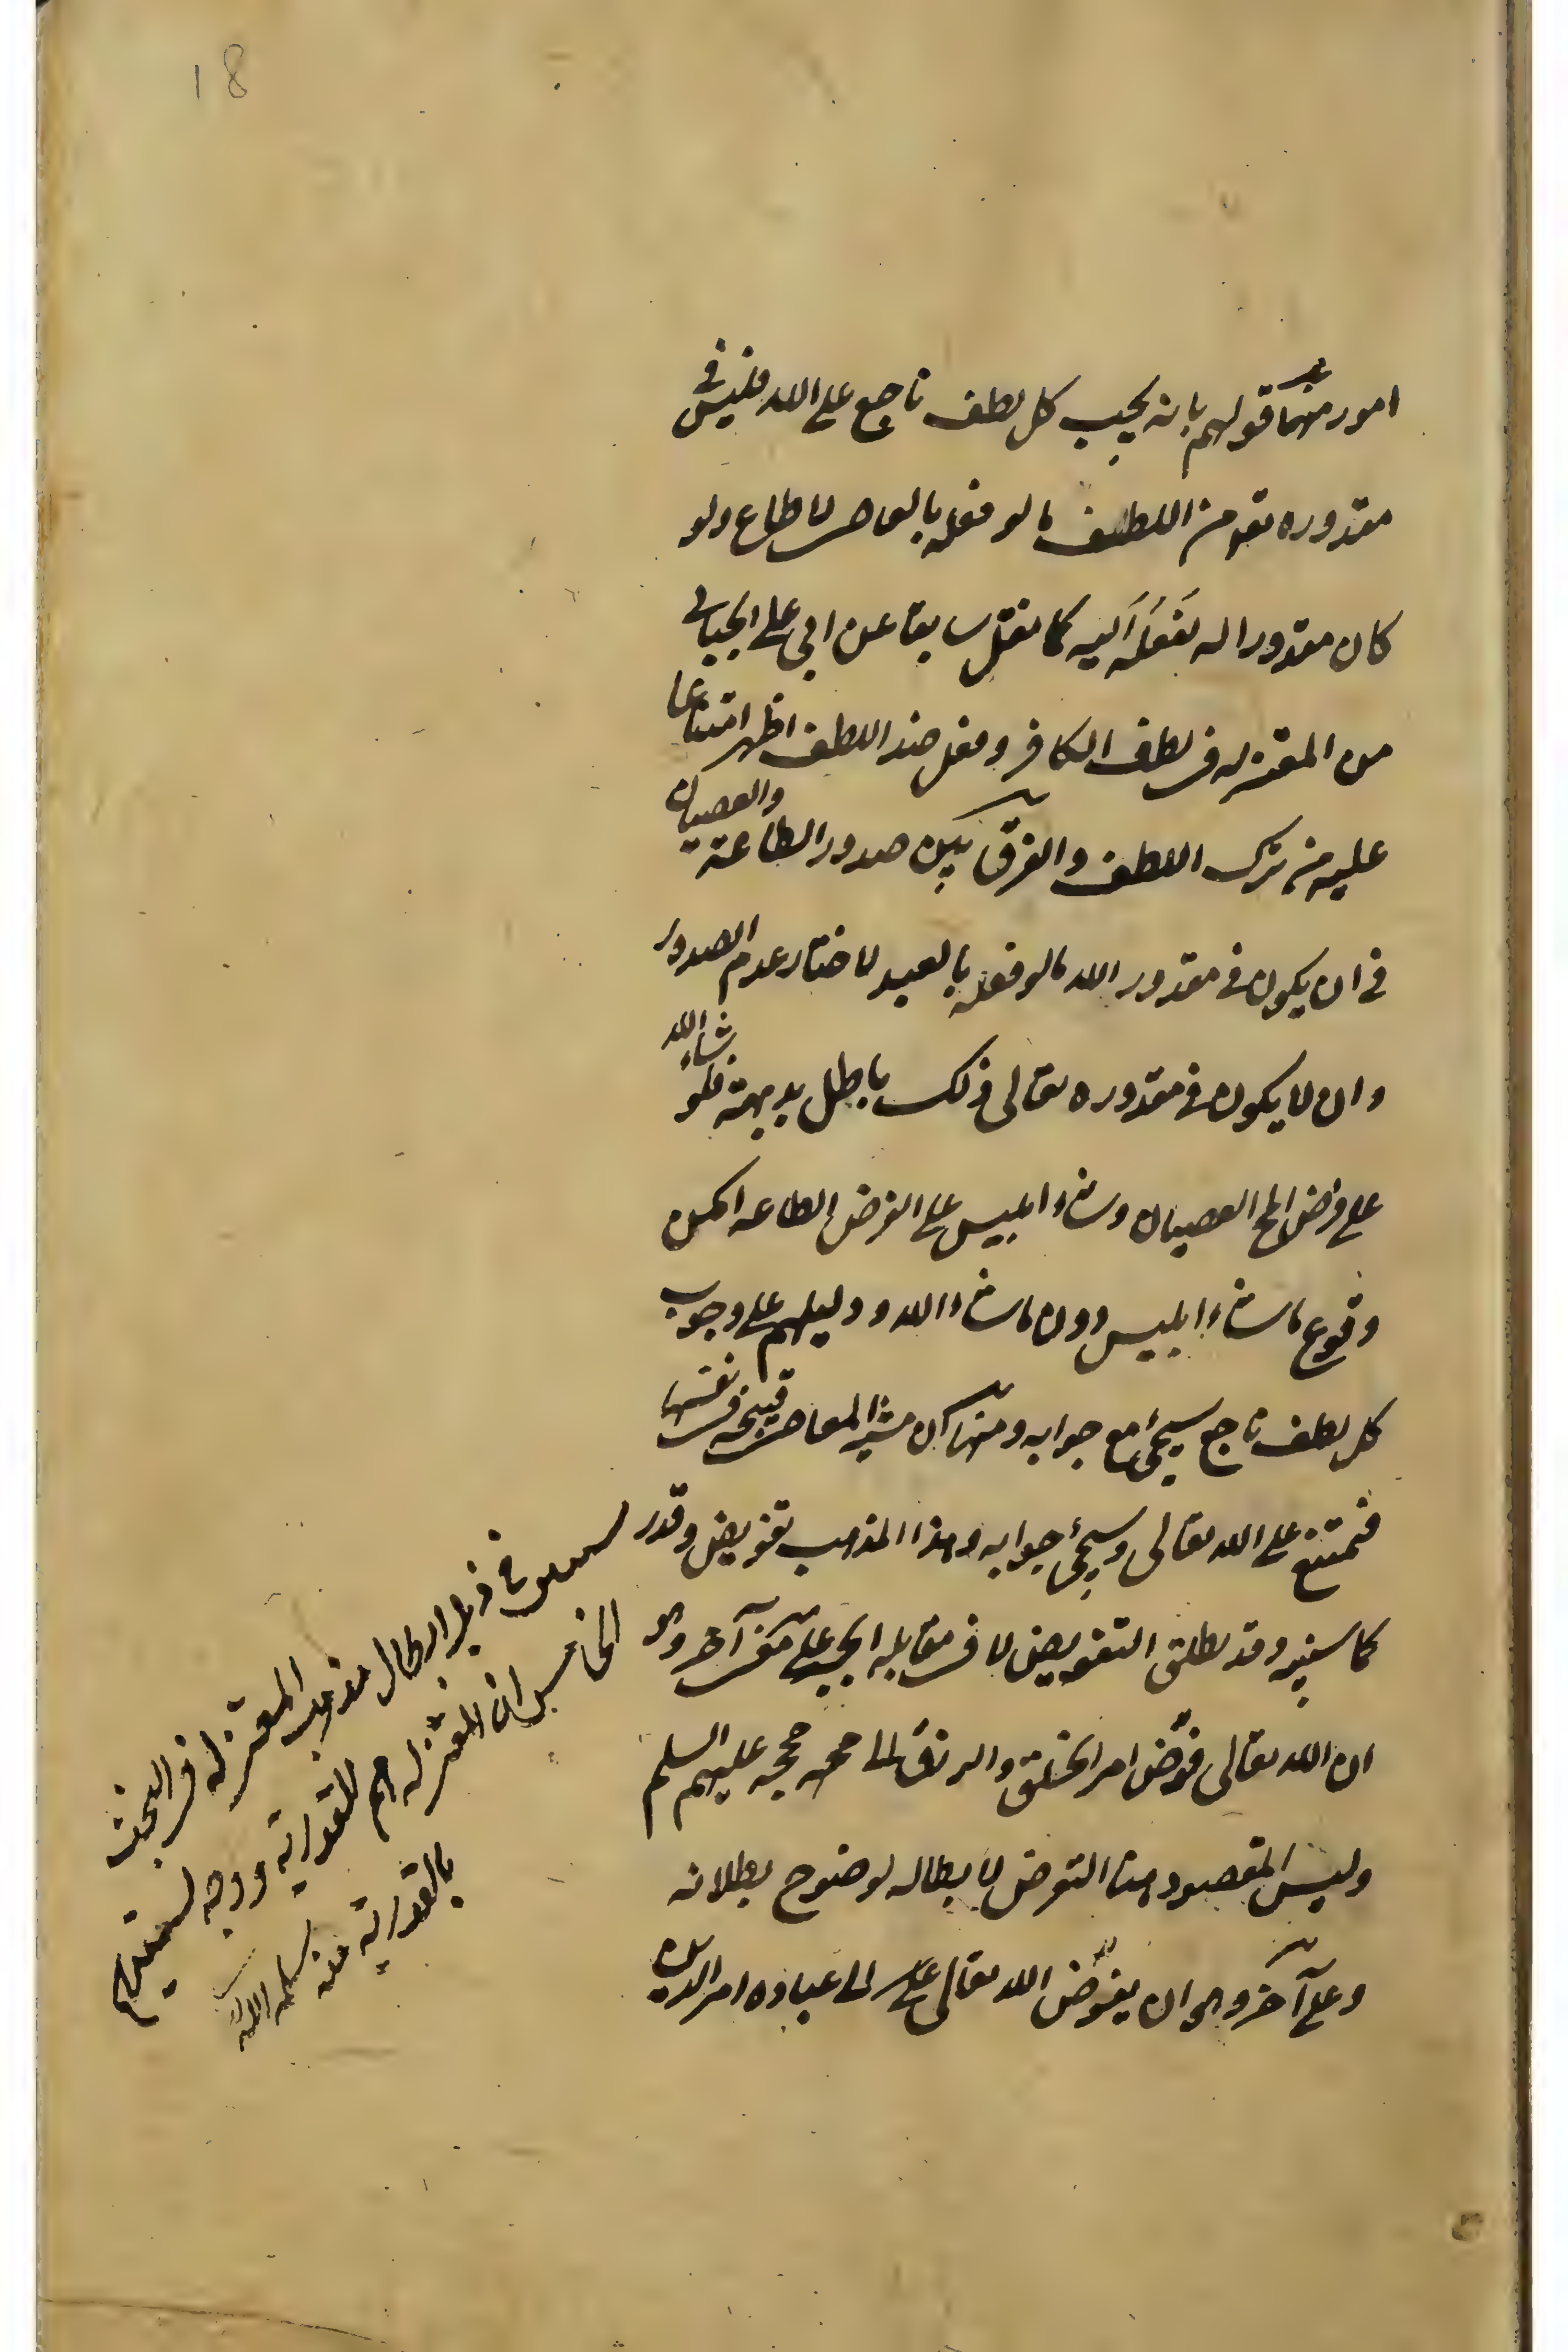 18
امور منها قولهم بانه يجب كل لطف ناجع على الله فليس في
مقدوره تعو من اللطف ما لو فعله بالعاصي لاطاع ولو
كان مقدورا له لفعله البته كما نقل سابقا عن ابي علي الجبائي
من المعتزله في لطف الكافر وفعل ضد اللطف اظهر امتناعا
عليه من ترك اللطف والفرق بين صدور الطاعة والعصيان
في ان يكون في مقدور الله ما لو فعله بالعبد لاختار عدم الصدور
وان لا يكون في مقدوره تعالى ذلك باطل بديهة فلو شاء الله
على فرض العصيان وشاء ابليس على الفرض الطاعه امكن
وقوع ما شاء ابليس دون ما شاء الله ودليلهم على وجوب
كل لطف ناجع سيجئ مع جوابه ومنها ان مشية المعاصي قبيحة في نفسها
فيمتنع على الله تعالى وسيجئ جوابه وهذا المذهب تفويض وقدر
كما سنبينه وقد يطلق التفويض لا في مقابله الجبر على معنى آخر وهو
ان الله تعالى فوّض امر الخلق والرزق الى حججه عليهم السلم
وليس المقصود هنا التعرض لابطاله لوضوح بطلانه
وعلى آخر وهو ان يفوّض الله تعالى الى عباده امر الدين
في ذيل ابطال مذهب المعتزله في البحث
الخامس ان المعتزله هم القدرية ووجه تسميتهم
بالقدرية منه سلمه الله